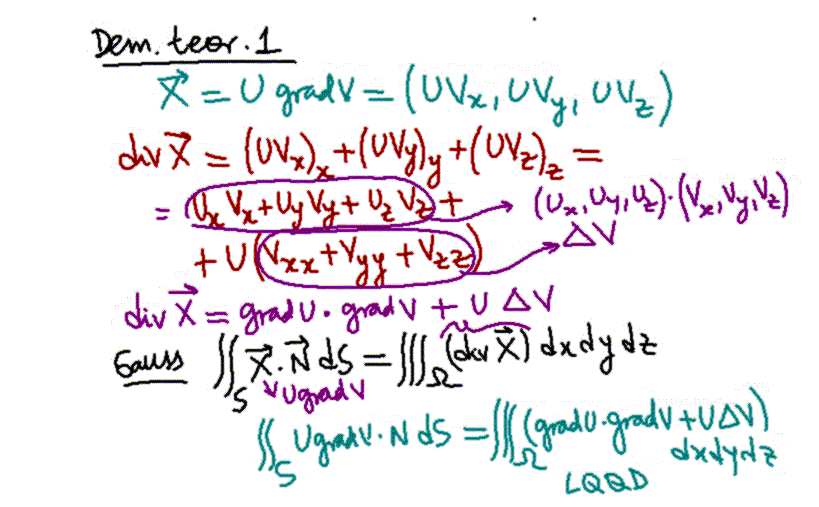 Dem. teor. 1
X⃗ = U gradV = (UVx, UVy, UVz)
div X⃗ = (UVx)x + (UVy)y + (UVz)z =
= UxVx + UyVy + UzVz + → (Ux, Uy, Uz)·(Vx, Vy, Vz)
+ U (Vxx + Vyy + Vzz) → ΔV
div X⃗ = gradU · gradV + U ΔV
Gauss ∬S X⃗·N⃗ dS = ∭Ω (div X⃗) dx dy dz
UgradV
∬S UgradV·N dS = ∭Ω (gradU·gradV + UΔV)
dx dy dz
LQQD